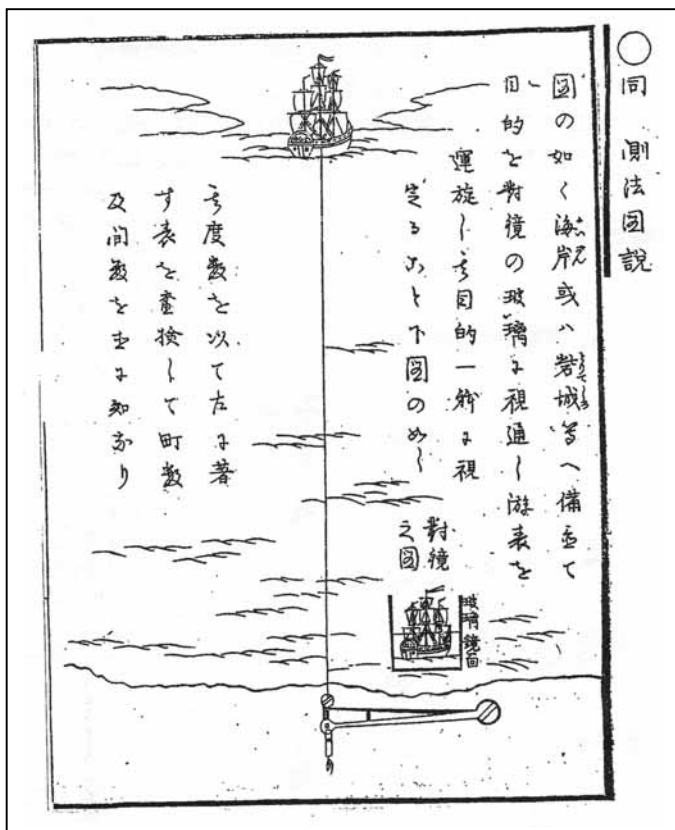 ○同 測法図説
図の如く海岸或ハ砦城等へ備置て
目的を對鏡の玻璃に視通し游表を
運旋し其目的一躰に視
定ること下図の如し
對鏡
之図
玻璃鏡面
其度数を以て左に著
す表を畫撿して町数
及間数を直に知なり